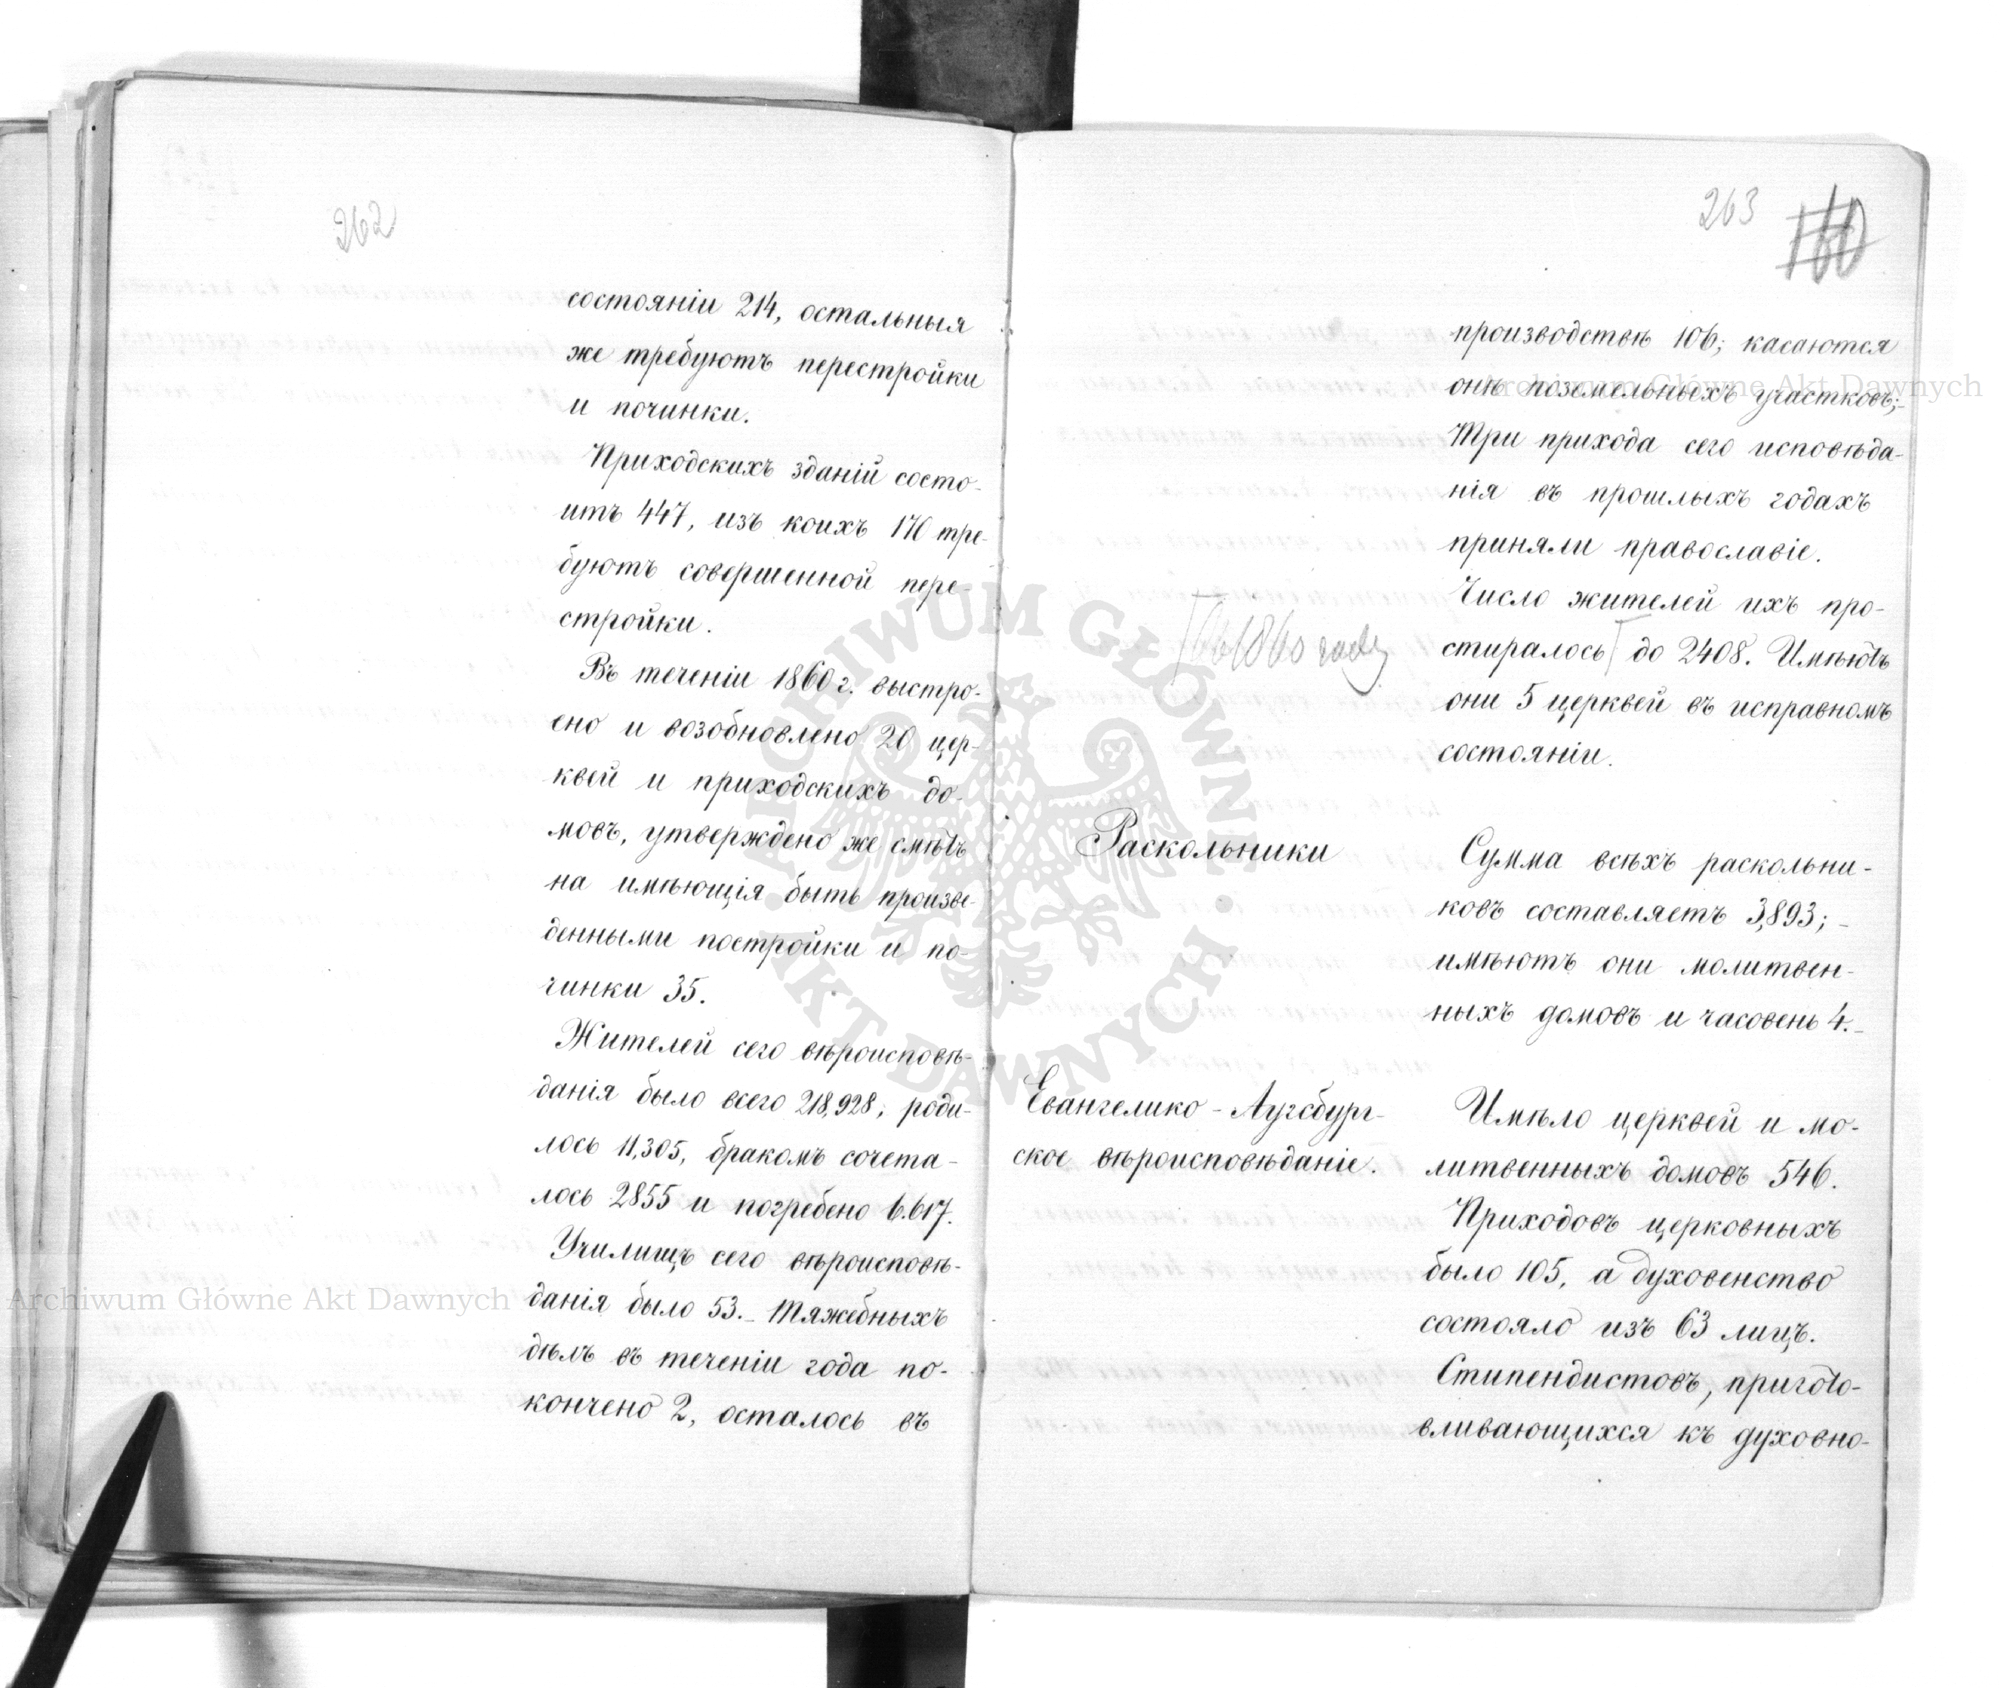 262
состояніи 214, остальныя
же требуютъ перестройки
и починки.
Приходскихъ зданій состо-
итъ 447, изъ коихъ 170 тре-
буютъ совершенной пере-
стройки.
Въ теченіи 1860 г. выстро-
ено и возобновлено 20 цер-
квей и приходскихъ до-
мовъ, утверждено же смѣтъ
на имѣющія быть произве-
денными постройки и по-
чинки 35.
Жителей сего вѣроисповѣ-
данія было всего 218,928; роди-
лось 11,305, бракомъ сочета-
лось 2855 и погребено 6.617.
Училищъ сего вѣроисповѣ-
данія было 53. Тяжебныхъ
дѣлъ въ теченіи года по-
кончено 2, осталось въ
263 160
производствѣ 106; касаются
онѣ поземельныхъ участковъ;
Три прихода сего исповѣда-
нія въ прошлыхъ годахъ
приняли православіе.
Число жителей ихъ про-
стиралось до 2408. Имѣютъ
въ 1860 году
они 5 церквей въ исправномъ
состояніи.
Раскольники
Сумма всѣхъ раскольни-
ковъ составляетъ 3,893;
имѣютъ они молитвен-
ныхъ домовъ и часовень 4.
Евангелико-Аугсбург-
ское вѣроисповѣданіе.
Имѣло церквей и мо-
литвенныхъ домовъ 546.
Приходовъ церковныхъ
было 105, а духовенство
состояло изъ 63 лицъ.
Стипендистовъ, пригото-
вливающихся къ духовно-
Archiwum Główne Akt Dawnych
Archiwum Główne Akt Dawnych
ARCHIWUM GŁÓWNE AKT DAWNYCH